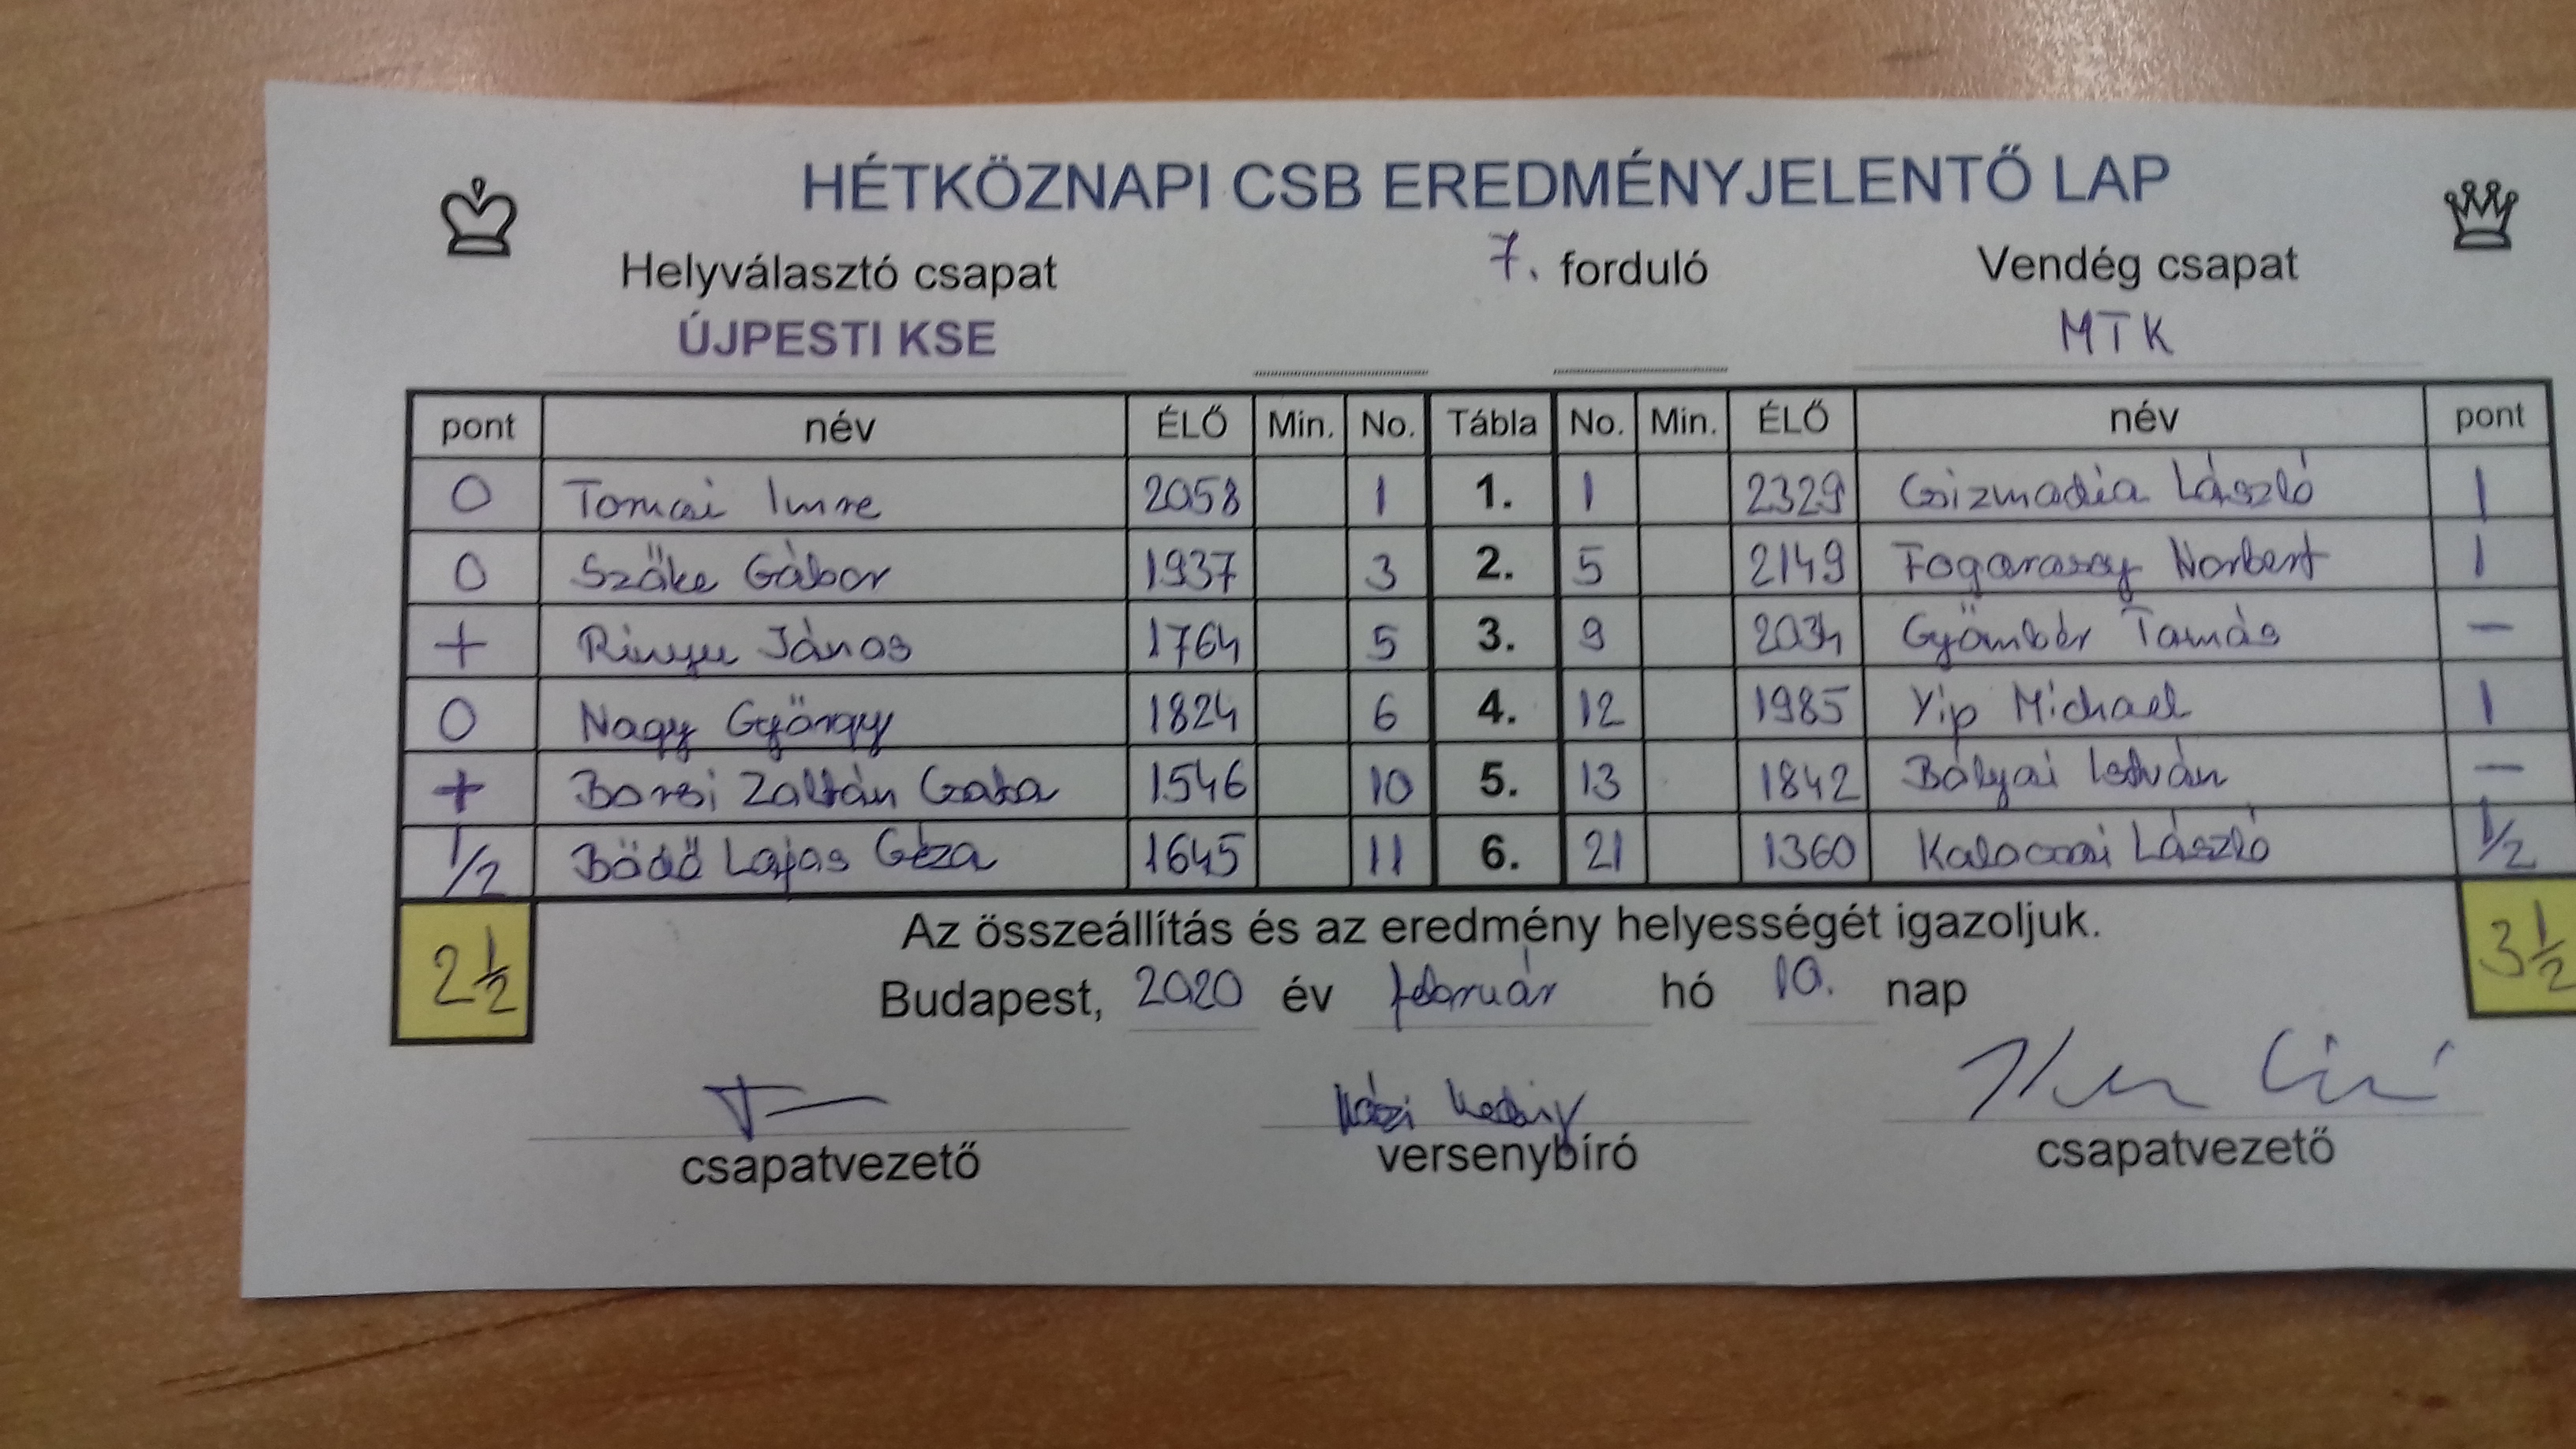 HÉTKÖZNAPI CSB EREDMÉNYJELENTŐ LAP
Helyválasztó csapat 7. forduló Vendég csapat
ÚJPESTI KSE MTK
pont név ÉLŐ Min. No. Tábla No. Min. ÉLŐ név pont
0 Tomai Imre 2058 1 1. 1 2329 Csizmadia László 1
0 Szőke Gábor 1937 3 2. 5 2149 Fogarasy Norbert 1
+ Rinyu János 1764 5 3. 9 2034 Gyömbér Tamás –
0 Nagy György 1824 6 4. 12 1985 Yip Michael 1
+ Borsi Zoltán Csaba 1546 10 5. 13 1842 Bólyai István –
1/2 Bödő Lajos Géza 1645 11 6. 21 1360 Kalocsai László 1/2
Az összeállítás és az eredmény helyességét igazoljuk.
2 1/2 Budapest, 2020 év február hó 10. nap 3 1/2
csapatvezető versenybíró csapatvezető